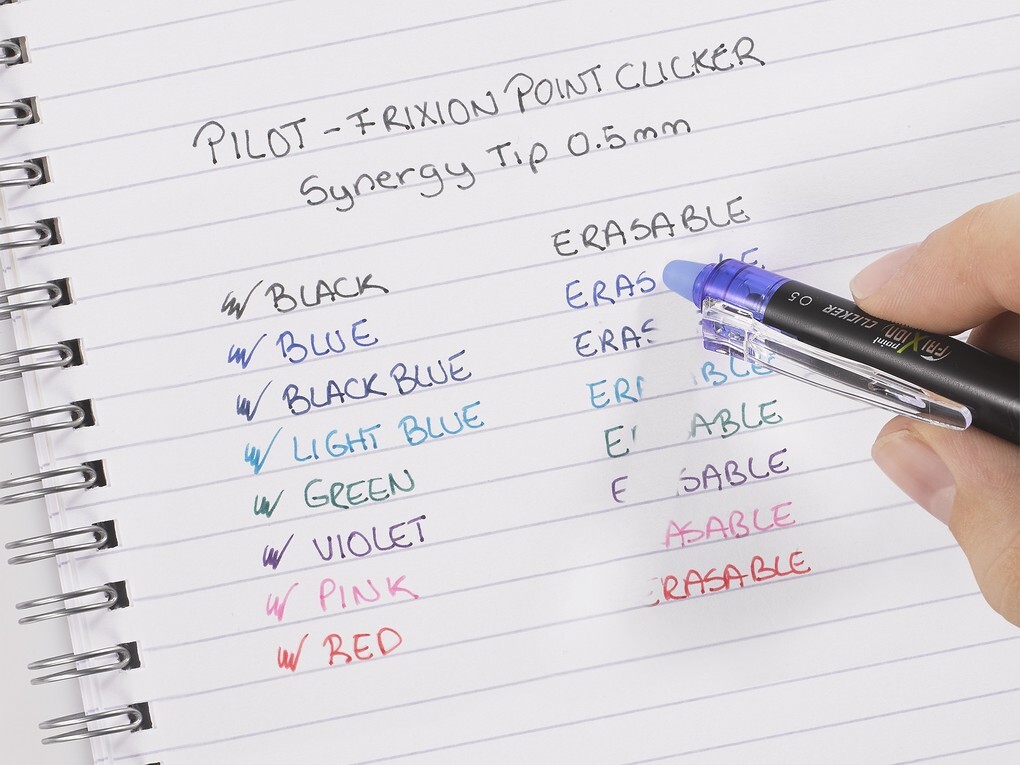 PILOT - FRIXION POINT CLICKER
Synergy Tip 0.5mm
ERASABLE
BLACK
ERAS LE
BLUE
ERAS
BLACK BLUE
ER BLE
LIGHT BLUE
E ABLE
GREEN
E SABLE
VIOLET
ASABLE
PINK
RASABLE
RED
point
FRIXION CLICKER 0.5